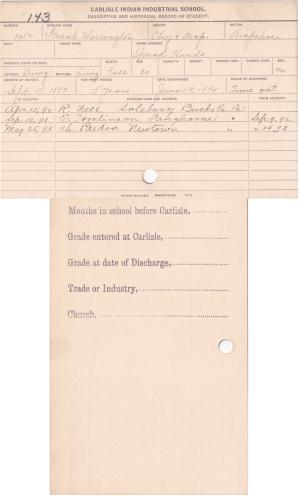 CARLISLE INDIAN INDUSTRIAL SCHOOL.
143
DESCRIPTIVE AND HISTORICAL RECORD OF STUDENT.
NUMBER ENGLISH NAME AGENCY NATION
1052 Frank Harrington Chey & Arap. Arapahoe
BAND INDIAN NAME HOME ADDRESS
Spread Hands
PARENTS LIVING OR DEAD BLOOD AGE HEIGHT WEIGHT FORCED INSP. FORCED EXPR. SEX
FATHER, Living MOTHER, Living Full 20
ARRIVED AT SCHOOL FOR WHAT PERIOD DATE DISCHARGED CAUSE OF DISCHARGE
Sept. 13, 1889 5 years June 19, 1894 Time out
TO COUNTRY PATRONS NAME AND ADDRESS FROM COUNTRY
Apr. 15, 90 R. Fell Solebury Bucks Co. Pa.
Sep. 10, 91 E. Tomlinson Langhorne " Sep. 9, 92
May 25, 93 Newtown " "
Months in school before Carlisle,
Grade entered at Carlisle,
Grade at date of Discharge,
Trade or Industry,
Church,